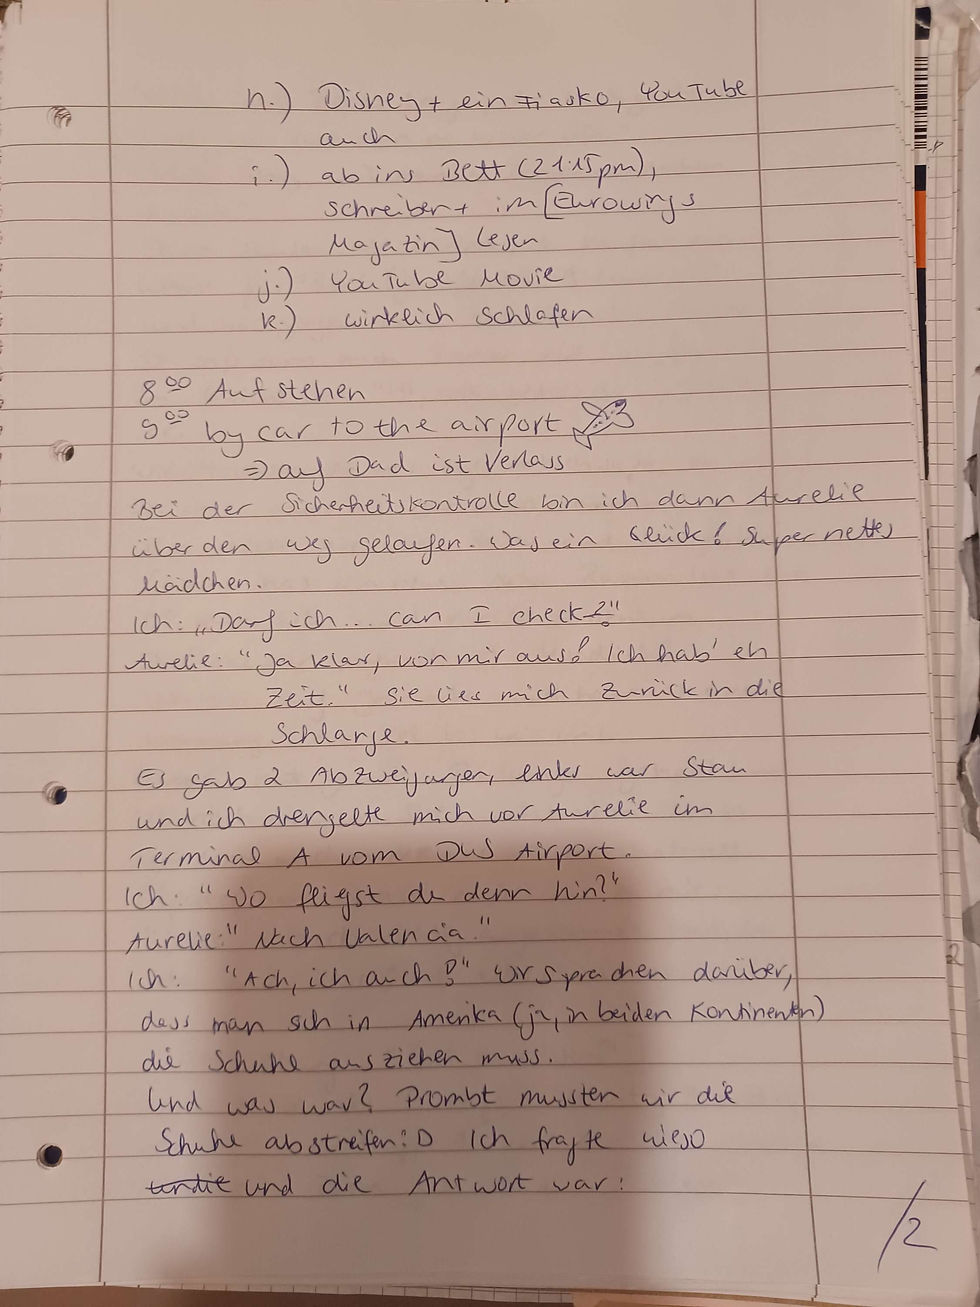 h.) Disney+ ein Fiasko, YouTube
auch
i.) ab ins Bett (21:15pm),
schreiben + im [Eurowings
Magazin] lesen
j.) YouTube Movie
k.) wirklich schlafen
8⁰⁰ Aufstehen
9⁰⁰ by car to the airport
⇒ auf Dad ist Verlass
Bei der Sicherheitskontrolle bin ich dann Aurelie
über den Weg gelaufen. Was ein Glück! Super nettes
Mädchen.
Ich: „Darf ich... can I check?!"
Aurelie: "Ja klar, von mir aus! Ich hab' eh
Zeit." Sie lies mich zurück in die
Schlange.
Es gab 2 Abzweigungen, links war Stau
und ich drengelte mich vor Aurelie im
Terminal A vom DUS Airport.
Ich: "Wo fliegst du denn hin?"
Aurelie: "Nach Valencia."
Ich: "Ach, ich auch?!" Wir sprachen darüber,
dass man sich in Amerika (ja, in beiden Kontinenten)
die Schuhe ausziehen muss.
Und was war? Prombt mussten wir die
Schuhe abstreifen :D Ich fragte wieso
und die Antwort war:
/2